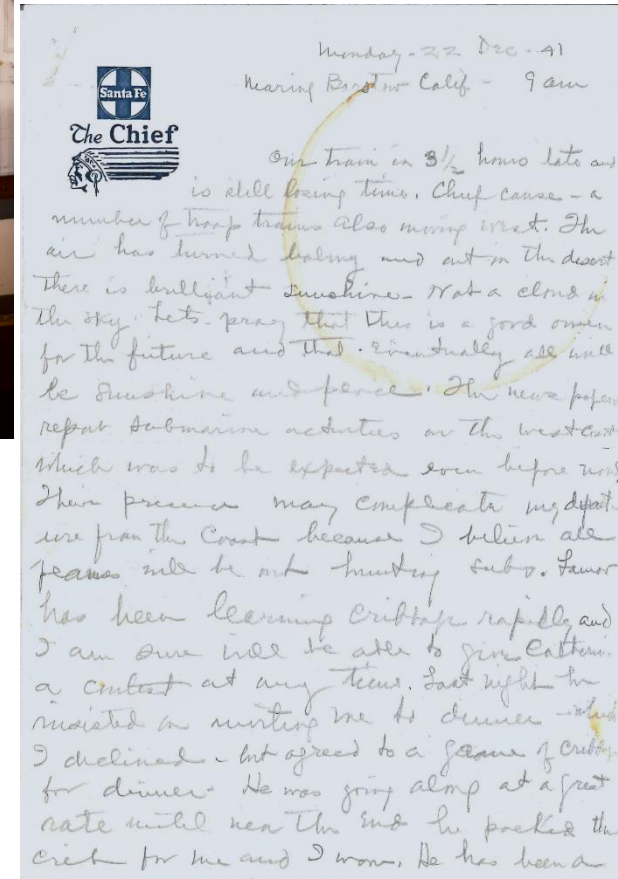 Monday - 22 Dec - 41
Nearing Barstow Calif - 9 am
Santa Fe
The Chief
Our train is 3 1/2 hours late and
is still losing time. Chief cause - a
number of troop trains also moving west. The
air has turned balmy and out on the desert
there is brilliant sunshine - Not a cloud in
the sky. Lets pray that this is a good omen
for the future and that eventually all will
be sunshine and peace. The news papers
report submarine activities on the west coast
which was to be expected even before now.
Their presence may complicate my depart-
ure from the Coast because I believe all
planes will be out hunting subs. Lamar
has been learning cribbage rapidly and
I am sure will be able to give Catherine
a contest at any time. Last night he
insisted on inviting me to dinner - which
I declined - but agreed to a game of cribbage
for dinner. He was going along at a great
rate until near the end he packed the
crib for me and I won. He has been an